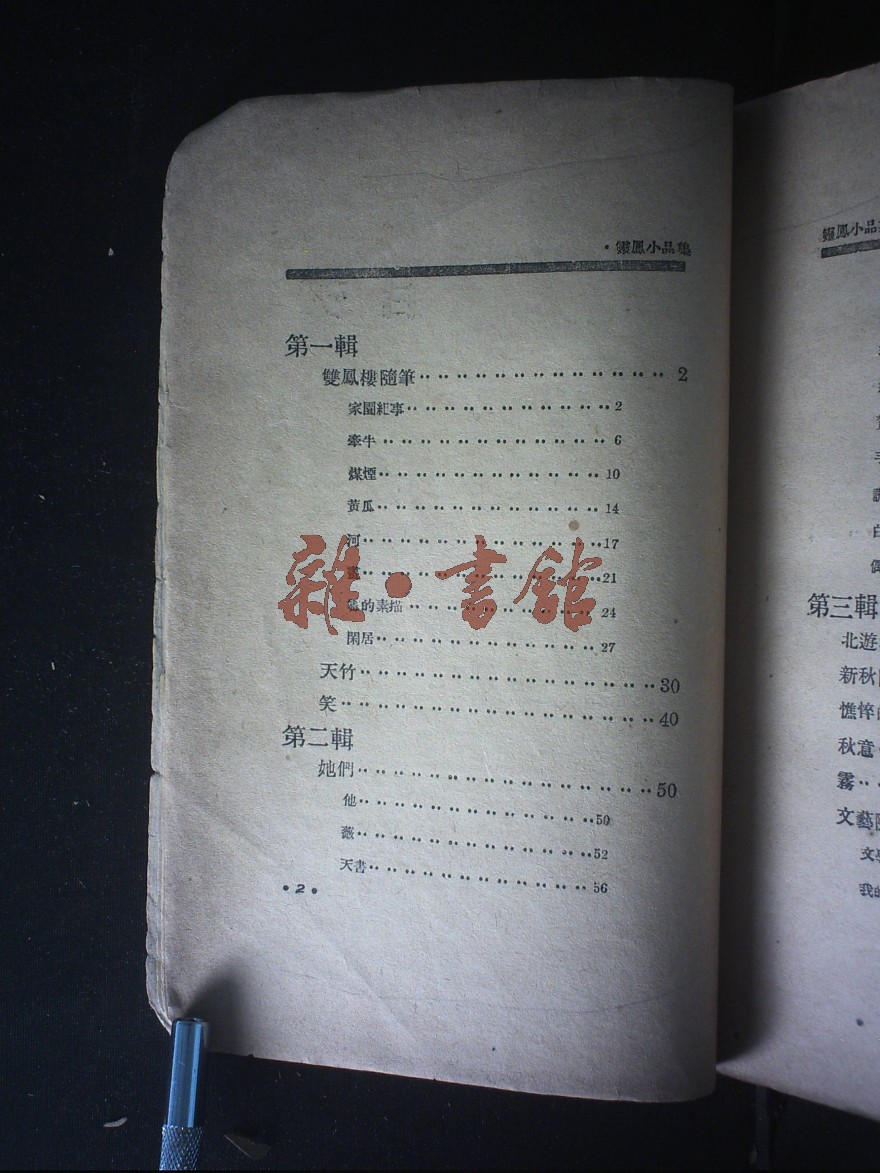 ·靈鳳小品集
第一輯
雙鳳樓隨筆 2
家園紀事 2
牽牛 6
煤煙 10
黃瓜 14
河 17
21
的素描 24
閑居 27
天竹 30
笑 40
第二輯
她們 50
他 50
薇 52
天書 56
·2·
雜·書館
靈鳳小品
第三輯
北遊
新秋
憔悴
秋意
霧
文藝
我的